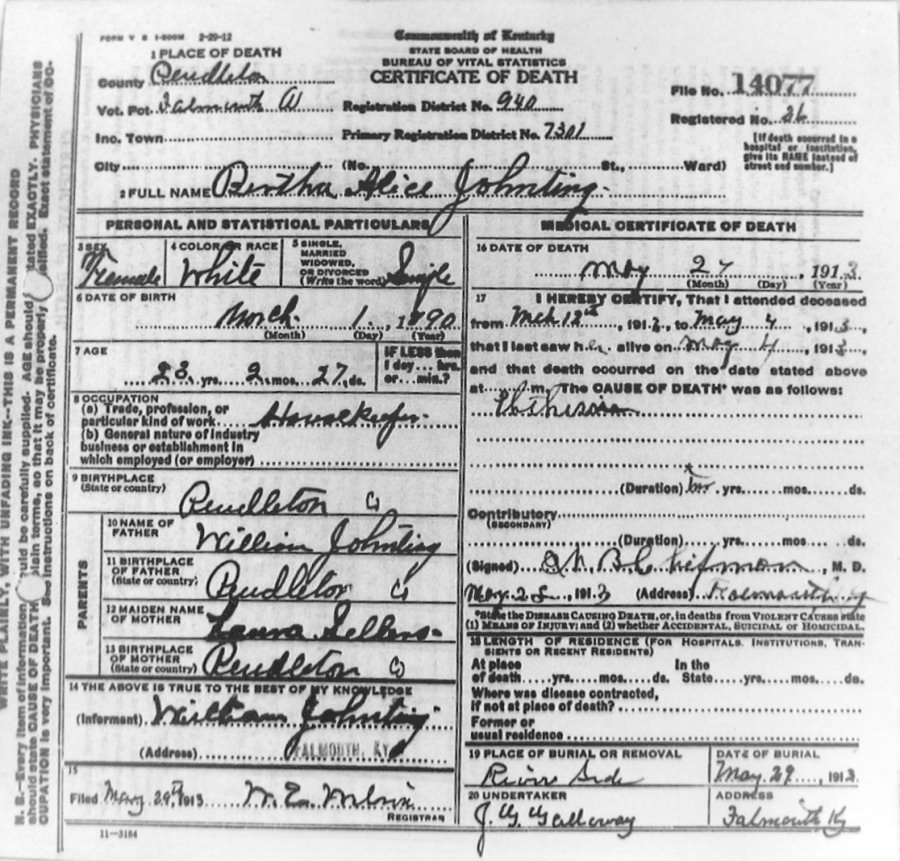 FORM V S 1-500M 2-29-12
Commonwealth of Kentucky
STATE BOARD OF HEALTH
BUREAU OF VITAL STATISTICS
CERTIFICATE OF DEATH
1 PLACE OF DEATH
County Pendleton
Vot. Pct. Falmouth
Registration District No. 940
File No. 14077
Inc. Town
Primary Registration District No. 7301
Registered No. 26
City (No. St., Ward)
[If death occurred in a
hospital or institution,
give its NAME instead of
street and number.]
2 FULL NAME Bertha Alice Johnting
PERSONAL AND STATISTICAL PARTICULARS
3 SEX Female
4 COLOR OR RACE White
5 SINGLE,
MARRIED
WIDOWED,
OR DIVORCED
(Write the word) Single
6 DATE OF BIRTH
March 1, 1890
(Month) (Day) (Year)
7 AGE
23 yrs. 2 mos. 27 ds.
IF LESS than
1 day.... hrs.
or.... min.?
8 OCCUPATION
(a) Trade, profession, or
particular kind of work Housekeeper
(b) General nature of industry
business or establishment in
which employed (or employer)
9 BIRTHPLACE
(State or country)
Pendleton Co
PARENTS
10 NAME OF
FATHER
William Johnting
11 BIRTHPLACE
OF FATHER
(State or country)
Pendleton Co
12 MAIDEN NAME
OF MOTHER
Laura Sellers
13 BIRTHPLACE
OF MOTHER
(State or country)
Pendleton Co
14 THE ABOVE IS TRUE TO THE BEST OF MY KNOWLEDGE
(Informant) William Johnting
(Address) FALMOUTH, KY.
15
Filed May 29th, 1913
REGISTRAR
11-3184
MEDICAL CERTIFICATE OF DEATH
16 DATE OF DEATH
May 27, 1913
(Month) (Day) (Year)
17 I HEREBY CERTIFY, That I attended deceased
from Mch 12th, 1913, to May 4, 1913,
that I last saw her alive on May 4, 1913,
and that death occurred on the date stated above
at m. The CAUSE OF DEATH* was as follows:
Phthisis
(Duration) yrs. mos. ds.
Contributory
(SECONDARY)
(Duration) yrs. mos. ds.
(Signed) M. D.
May 28, 1913 (Address) Falmouth Ky
*State the DISEASE CAUSING DEATH, or, in deaths from VIOLENT CAUSES state
(1) MEANS OF INJURY; and (2) whether ACCIDENTAL, SUICIDAL or HOMICIDAL.
18 LENGTH OF RESIDENCE (FOR HOSPITALS, INSTITUTIONS, TRAN-
SIENTS OR RECENT RESIDENTS)
At place In the
of death yrs. mos. ds. State yrs. mos. ds.
Where was disease contracted,
if not at place of death?
Former or
usual residence
19 PLACE OF BURIAL OR REMOVAL
River Side
DATE OF BURIAL
May 29, 1913
20 UNDERTAKER
J. G. Galloway
ADDRESS
Falmouth Ky
WRITE PLAINLY, WITH UNFADING INK--THIS IS A PERMANENT RECORD
N. B.--Every item of information should be carefully supplied. AGE should stated EXACTLY. PHYSICIANS
should state CAUSE OF DEATH plain terms, so that it may be properly classified. Exact statement of OC-
CUPATION is very important. See instructions on back of certificate.